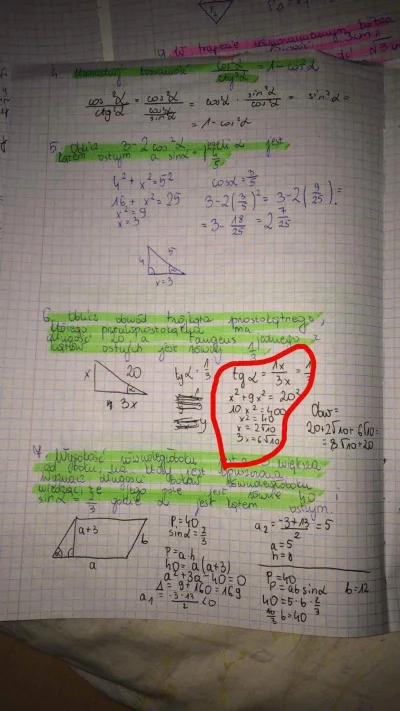 4. Uzasadnij tożsamość cos²α/ctg²α = 1 - cos²α
cos²α/ctg²α = cos²α/(cos²α/sin²α) = cos²α · sin²α/cos²α = sin²α =
= 1 - cos²α
5. Oblicz 3-2cos²α, jeżeli α jest
kątem ostrym a sinα = 4/5
4² + x² = 5²
16 + x² = 25
x² = 9
x = 3
cosα = 3/5
3-2(3/5)² = 3-2(9/25) =
= 3 - 18/25 = 2 7/25
4
5
α
x=3
6. Oblicz obwód trójkąta prostokątnego,
którego przeciwprostokątna ma
długość 20 a tangens jednego z
kątów ostrych jest równy 1/3.
x
20
α
3x
tgα = 1/3
y
tgα = 1x/3x = 1
x² + 9x² = 20²
10x² = 400
x² = 40
x = 2√10
3x = 6√10
Obw =
20+2√10+6√10=
= 8√10+20
7. Wysokość równoległoboku jest o 3 większa
od boku, na który jest opuszczona
długość boków równoległoboku
wiedząc, że jego pole jest równe 40 i
sinα = 2/3 gdzie α jest kątem ostrym.
a+3
b
α
a
P = 40
sinα = 2/3
P = a·h
40 = a(a+3)
a² + 3a - 40 = 0
Δ = 9 + 160 = 169
a₁ = (-3-13)/2 < 0
a₂ = (-3+13)/2 = 5
a = 5
h = 8
P = 40
P = ab sinα
40 = 5 · b · 2/3
10/3 b = 40
b = 12